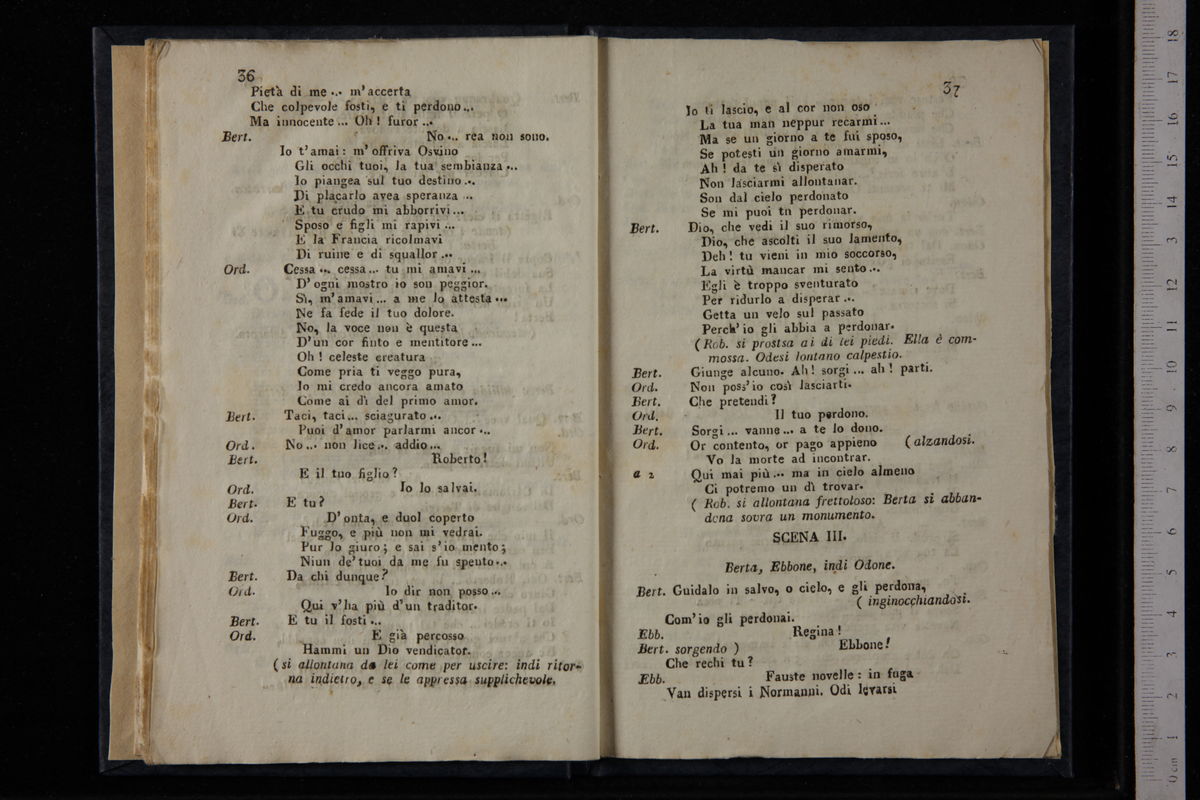 36
Pietà di me ... m'accerta
Che colpevole fosti, e ti perdono...
Ma innocente ... Oh! furor ...
Bert. No ... rea non sono.
Io t'amai: m'offriva Osvino
Gli occhi tuoi, la tua sembianza ...
Io piangea sul tuo destino ...
Di placarlo avea speranza ...
E tu crudo mi abborrivi ...
Sposo e figli mi rapivi ...
E la Francia ricolmavi
Di ruine e di squallor ...
Ord. Cessa ... cessa... tu mi amavi ...
D'ogni mostro io son peggior.
Sì, m'amavi ... a me lo attesta ...
Ne fa fede il tuo dolore.
No, la voce non è questa
D'un cor finto e mentitore ...
Oh! celeste creatura
Come pria ti veggo pura,
Io mi credo ancora amato
Come ai dì del primo amor.
Bert. Taci, taci... sciagurato ...
Puoi d'amor parlarmi ancor ...
Ord. No ... non lice ... addio ...
Bert. Roberto!
E il tuo figlio?
Ord. Io lo salvai.
Bert. E tu?
Ord. D'onta, e duol coperto
Fuggo, e più non mi vedrai.
Pur lo giuro; e sai s'io mento;
Niun de'tuoi da me fu spento ...
Bert. Da chi dunque?
Ord. Io dir non posso ...
Qui v'ha più d'un traditor.
Bert. E tu il fosti ...
Ord. E già percosso
Hammi un Dio vendicator.
(si allontana da lei come per uscire: indi ritor-
na indietro, e se le appressa supplichevole.
37
Io ti lascio, e al cor non oso
La tua man neppur recarmi ...
Ma se un giorno a te fui sposo,
Se potesti un giorno amarmi,
Ah! da te sì disperato
Non lasciarmi allontanar.
Son dal cielo perdonato
Se mi puoi tn perdonar.
Bert. Dio, che vedi il suo rimorso,
Dio, che ascolti il suo lamento,
Deh! tu vieni in mio soccorso,
La virtù mancar mi sento ...
Egli è troppo sventurato
Per ridurlo a disperar ...
Getta un velo sul passato
Perch'io gli abbia a perdonar.
(Rob. si prostsa ai di lei piedi. Ella è com-
mossa. Odesi lontano calpestio.
Bert. Giunge alcuno. Ah! sorgi ... ah! parti.
Ord. Non poss'io così lasciarti.
Bert. Che pretendi?
Ord. Il tuo perdono.
Bert. Sorgi ... vanne ... a te lo dono.
Ord. Or contento, or pago appieno (alzandosi.
Vo la morte ad incontrar.
a 2 Qui mai più ... ma in cielo almeno
Ci potremo un dì trovar.
(Rob. si allontana frettoloso: Berta si abban-
dona sovra un monumento.
SCENA III.
Berta, Ebbone, indi Odone.
Bert. Guidalo in salvo, o cielo, e gli perdona,
(inginocchiandosi.
Com'io gli perdonai.
Ebb. Regina!
Bert. sorgendo) Ebbone!
Che rechi tu?
Ebb. Fauste novelle: in fuga
Van dispersi i Normanni. Odi levarsi
0 cm 1 2 3 4 5 6 7 8 9 10 11 12 13 14 15 16 17 18